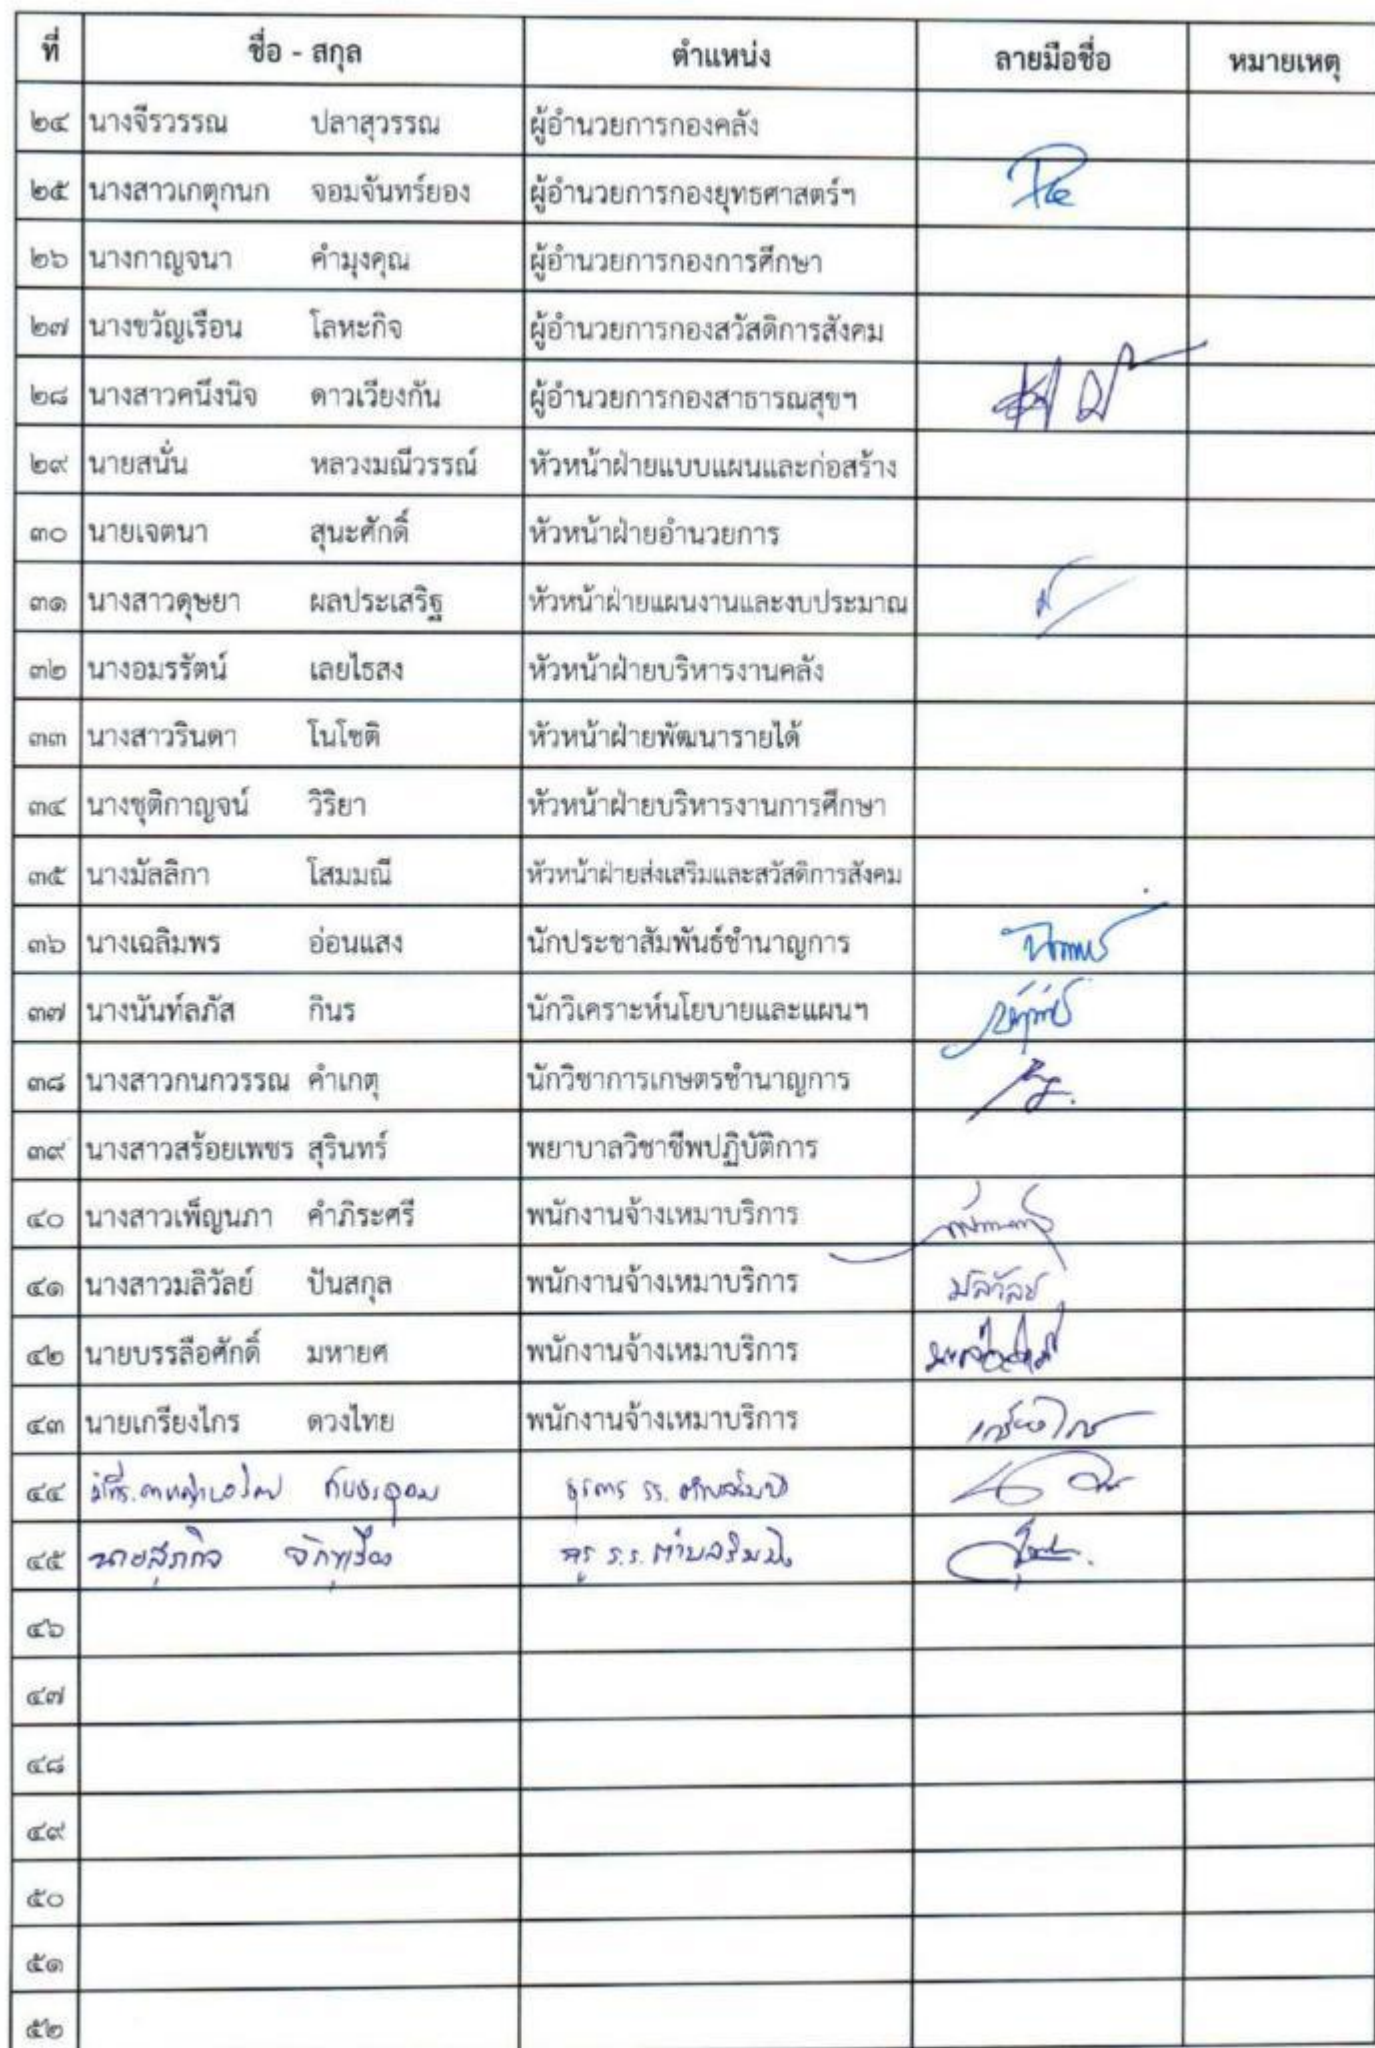 ที่ ชื่อ - สกุล ตำแหน่ง ลายมือชื่อ หมายเหตุ
๒๔ นางจีรวรรณ ปลาสุวรรณ ผู้อำนวยการกองคลัง
๒๕ นางสาวเกตุกนก จอมจันทร์ยอง ผู้อำนวยการกองยุทธศาสตร์ฯ
๒๖ นางกาญจนา คำมุงคุณ ผู้อำนวยการกองการศึกษา
๒๗ นางขวัญเรือน โลหะกิจ ผู้อำนวยการกองสวัสดิการสังคม
๒๘ นางสาวคนึงนิจ ดาวเวียงกัน ผู้อำนวยการกองสาธารณสุขฯ
๒๙ นายสนั่น หลวงมณีวรรณ์ หัวหน้าฝ่ายแบบแผนและก่อสร้าง
๓๐ นายเจตนา สุนะศักดิ์ หัวหน้าฝ่ายอำนวยการ
๓๑ นางสาวดุษยา ผลประเสริฐ หัวหน้าฝ่ายแผนงานและงบประมาณ
๓๒ นางอมรรัตน์ เลยไธสง หัวหน้าฝ่ายบริหารงานคลัง
๓๓ นางสาวรินดา โนโชติ หัวหน้าฝ่ายพัฒนารายได้
๓๔ นางชุติกาญจน์ วิริยา หัวหน้าฝ่ายบริหารงานการศึกษา
๓๕ นางมัลลิกา โสมมณี หัวหน้าฝ่ายส่งเสริมและสวัสดิการสังคม
๓๖ นางเฉลิมพร อ่อนแสง นักประชาสัมพันธ์ชำนาญการ
๓๗ นางนันท์ลภัส กินร นักวิเคราะห์นโยบายและแผนฯ
๓๘ นางสาวกนกวรรณ คำเกตุ นักวิชาการเกษตรชำนาญการ
๓๙ นางสาวสร้อยเพชร สุรินทร์ พยาบาลวิชาชีพปฏิบัติการ
๔๐ นางสาวเพ็ญนภา คำภิระศรี พนักงานจ้างเหมาบริการ
๔๑ นางสาวมลิวัลย์ ปันสกุล พนักงานจ้างเหมาบริการ มลิวัลย์
๔๒ นายบรรลือศักดิ์ มหายศ พนักงานจ้างเหมาบริการ
๔๓ นายเกรียงไกร ดวงไทย พนักงานจ้างเหมาบริการ เกรียงไกร
๔๔ ธุรการ รร.
๔๕ นายสุภกิจ ครู ร.ร.
๔๖
๔๗
๔๘
๔๙
๕๐
๕๑
๕๒